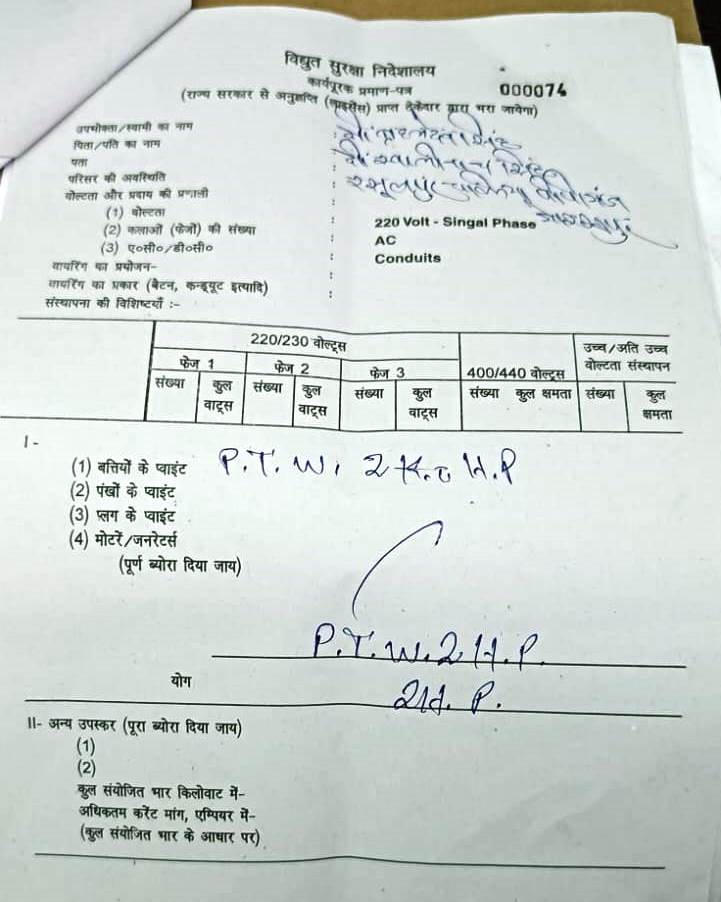 विद्युत सुरक्षा निदेशालय
कार्यपूरक प्रमाण-पत्र
000074
(राज्य सरकार से अनुज्ञप्ति (लाइसेंस) प्राप्त ठेकेदार द्वारा भरा जायेगा)
उपभोक्ता/स्वामी का नाम :
पिता/पति का नाम : सिंह
पता :
परिसर की अवस्थिति :
वोल्टता और प्रदाय की प्रणाली :
(1) वोल्टता : 220 Volt - Singal Phase
(2) कलाओं (फेजों) की संख्या
(3) ए०सी०/डी०सी० : AC
वायरिंग का प्रयोजन- : Conduits
वायरिंग का प्रकार (बैटन, कन्ड्यूट इत्यादि) :
संस्थापना की विशिष्टयाँ :-
220/230 वोल्ट्स
उच्च/अति उच्च
फेज 1 फेज 2 फेज 3 400/440 वोल्ट्स वोल्टता संस्थापन
संख्या कुल संख्या कुल संख्या कुल संख्या कुल क्षमता संख्या कुल
वाट्स वाट्स वाट्स क्षमता
I-
(1) बत्तियों के प्वाइंट P.T.W. 2 H.P
(2) पंखों के प्वाइंट
(3) प्लग के प्वाइंट
(4) मोटरें/जनरेटर्स
(पूर्ण ब्योरा दिया जाय)
P.T.W. 2 H.P.
योग 2 H.P.
II- अन्य उपस्कर (पूरा ब्योरा दिया जाय)
(1)
(2)
कुल संयोजित भार किलोवाट में-
अधिकतम करेंट मांग, एम्पियर में-
(कुल संयोजित भार के आधार पर)